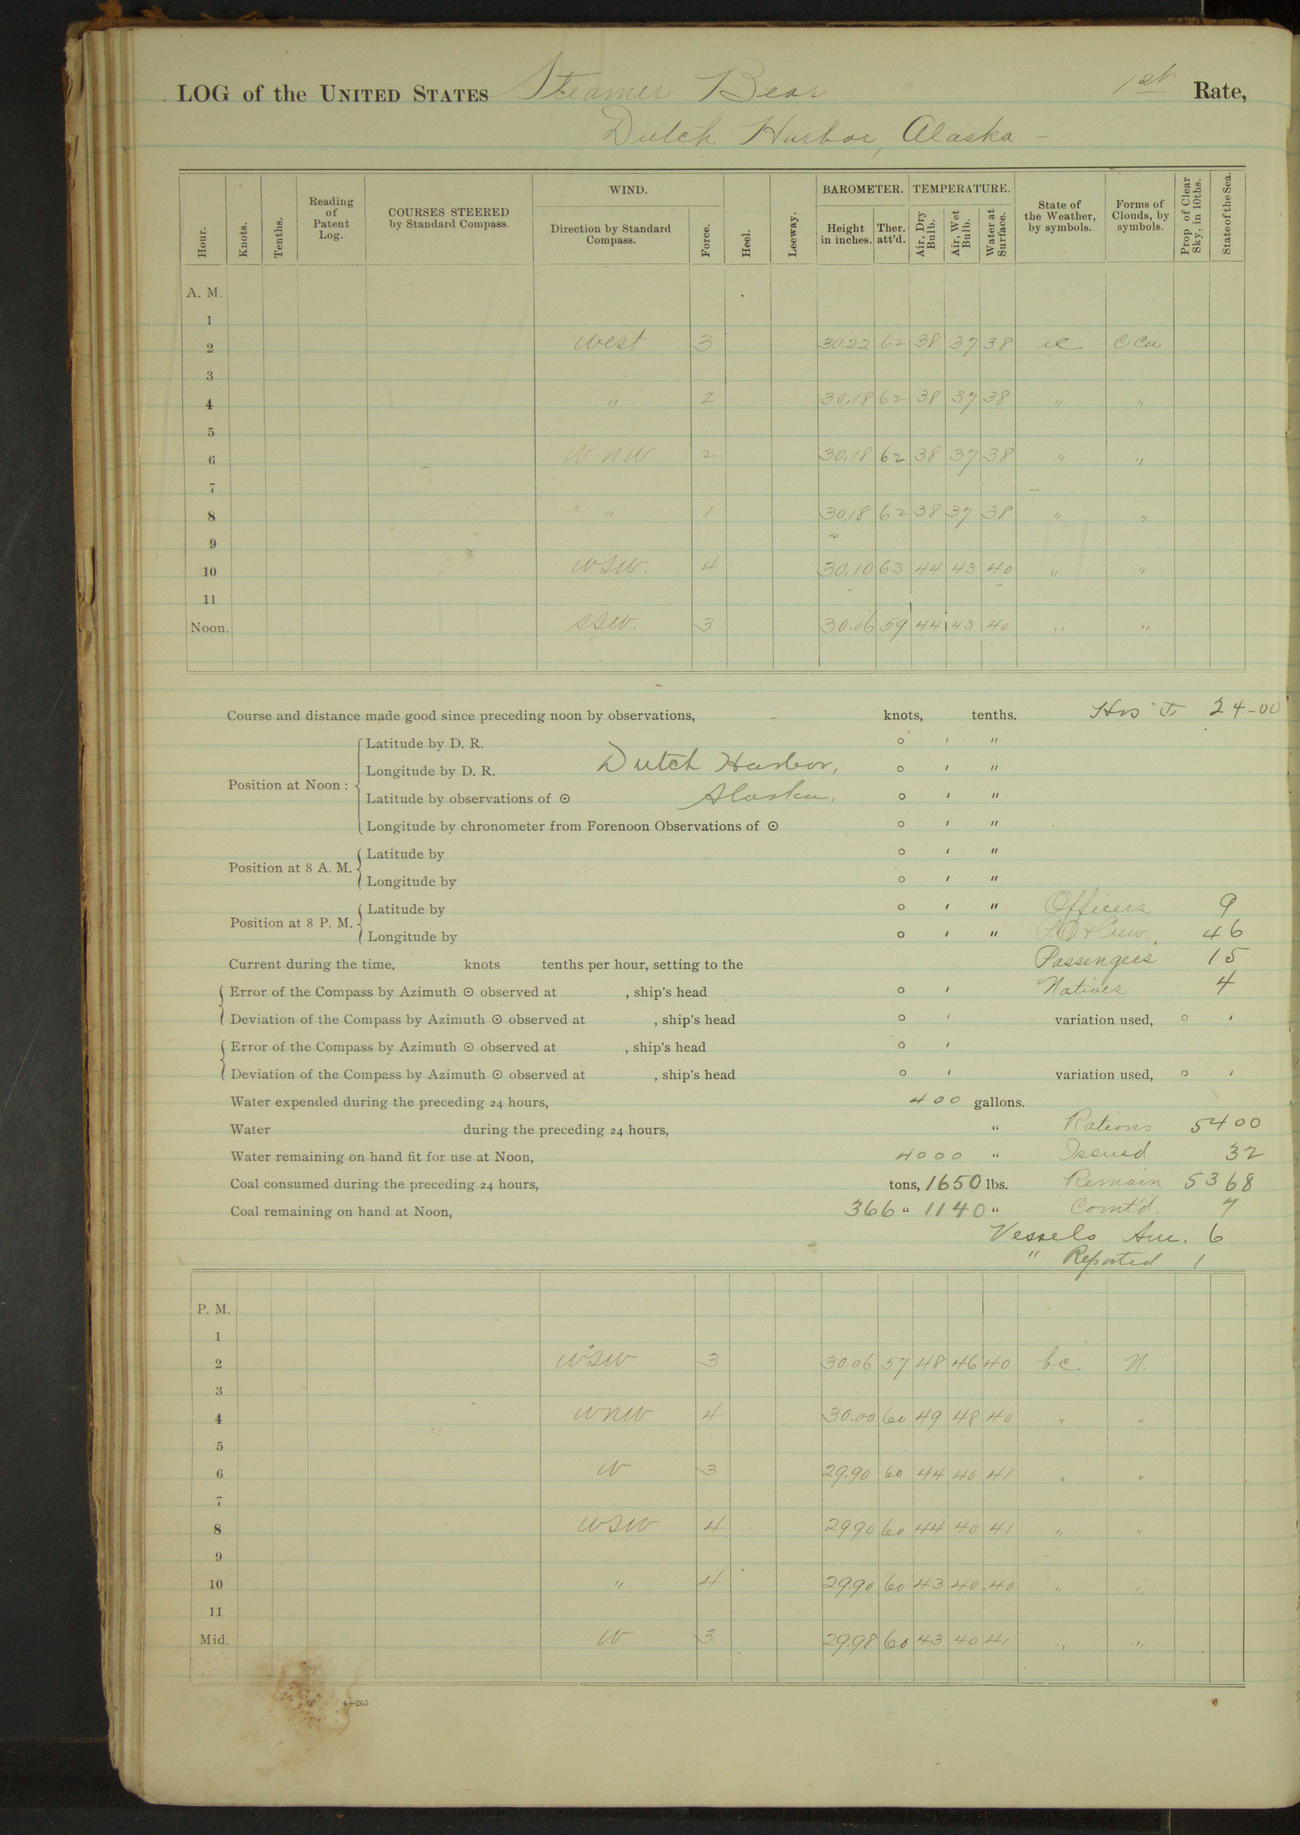 LOG of the UNITED STATES Steamer Bear 1st Rate,
Dutch Harbor, Alaska -
Hour. Knots. Tenths. Reading of Patent Log. COURSES STEERED by Standard Compass. WIND. Direction by Standard Compass. Force. Heel. Leeway. BAROMETER. Height in inches. Ther. att'd. TEMPERATURE. Air, Dry Bulb. Air, Wet Bulb. Water at Surface. State of the Weather, by symbols. Forms of Clouds, by symbols. Prop. of Clear Sky, in 10ths. State of the Sea.
A. M.
1
2 West 3 30.22 62 38 37 38 C Cu
3
4 " 2 30.18 62 38 37 38 " "
5
6 W.N.W 2 30.18 62 38 37 38 " "
7
8 " 1 30.18 62 38 37 38 " "
9
10 WSW. 4 30.10 63 44 43 40 " "
11
Noon. SSW. 3 30.06 59 44 43 40 " "
Course and distance made good since preceding noon by observations, knots, tenths. 24-00
Position at Noon: Latitude by D. R. ° ' "
Longitude by D. R. Dutch Harbor, ° ' "
Latitude by observations of ⊙ Alaska. ° ' "
Longitude by chronometer from Forenoon Observations of ⊙ ° ' "
Position at 8 A. M. Latitude by ° ' "
Longitude by ° ' "
Position at 8 P. M. Latitude by ° ' " Officers 9
Longitude by ° ' " & Crew. 46
Current during the time, knots tenths per hour, setting to the Passengers 15
Error of the Compass by Azimuth ⊙ observed at , ship's head ° ' Natives 4
Deviation of the Compass by Azimuth ⊙ observed at , ship's head ° ' variation used, ° '
Error of the Compass by Azimuth ⊙ observed at , ship's head ° '
Deviation of the Compass by Azimuth ⊙ observed at , ship's head ° ' variation used, ° '
Water expended during the preceding 24 hours, 400 gallons.
Water during the preceding 24 hours, " Rations 5400
Water remaining on hand fit for use at Noon, 4000 " Issued 32
Coal consumed during the preceding 24 hours, tons, 1650 lbs. Remain 5368
Coal remaining on hand at Noon, 366 " 1140 " Comt'd. 7
Vessels Am. 6
" Reported 1
P. M.
1
2 WSW 3 30.06 57 48 46 40 b.c. N.
3
4 WNW 4 30.00 60 49 48 40 " "
5
6 W 3 29.90 60 44 40 41 " "
7
8 WSW 4 29.90 60 44 40 41 " "
9
10 " 4 29.90 60 43 40 40 " "
11
Mid. W 3 29.98 60 43 40 41 " "
4—265